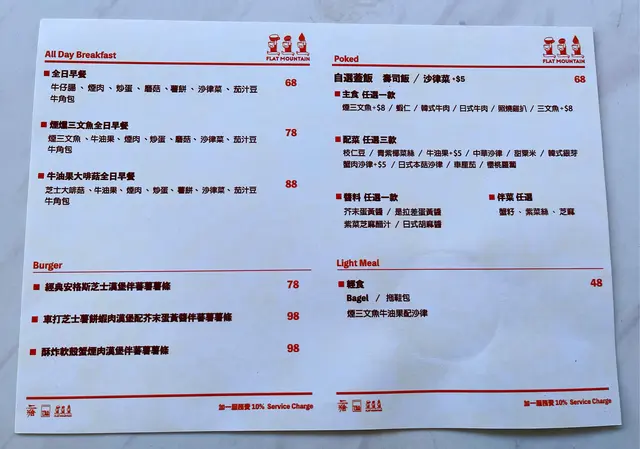 All Day Breakfast
FLAT MOUNTAIN
全日早餐 68
牛仔腸、煙肉、炒蛋、蘑菇、薯餅、沙律菜、茄汁豆
牛角包
煙燻三文魚全日早餐 78
煙三文魚、牛油果、煙肉、炒蛋、蘑菇、沙律菜、茄汁豆
牛角包
牛油果大啡菇全日早餐 88
芝士大啡菇、牛油果、煙肉、炒蛋、薯餅、沙律菜、茄汁豆
牛角包
Burger
經典安格斯芝士漢堡伴蕃薯薯條 78
車打芝士薯餅蝦肉漢堡配芥末蛋黃醬伴蕃薯薯條 98
酥炸軟殼蟹煙肉漢堡伴蕃薯薯條 98
加一服務費 10% Service Charge
Poked
FLAT MOUNTAIN
自選蓋飯 壽司飯 / 沙律菜 +$5 68
主食 任選一款
煙三文魚+$8 / 蝦仁 / 韓式牛肉 / 日式牛肉 / 照燒雞扒 / 三文魚+$8
配菜 任選三款
枝仁豆 / 青紫椰菜絲 / 牛油果+$5 / 中華沙律 / 甜粟米 / 韓式銀芽
蟹肉沙律+$5 / 日式本菇沙律 / 車厘茄 / 櫻桃蘿蔔
醬料 任選一款
芥末蛋黃醬 / 是拉差蛋黃醬
紫菜芝麻醋汁 / 日式胡麻醬
伴菜 任選
蟹籽、紫菜絲、芝麻
Light Meal
輕食 48
Bagel / 拖鞋包
煙三文魚牛油果配沙律
加一服務費 10% Service Charge